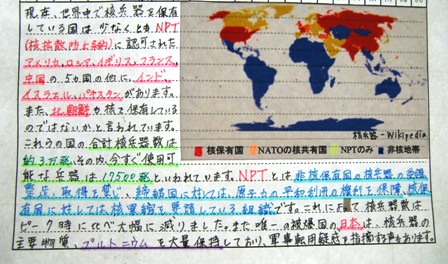 現在、世界中で核兵器を保有
している国は、少なくとも、NPT
(核拡散防止条約)に認可された
アメリカ、ロシア、イギリス、フランス、
中国の5ヵ国の他に、インド、
イスラエル、パキスタンがあります。
また、北朝鮮が核を保有している
のではないかと言われています。
これらの国の合計核兵器数は
約3万発、その内、今すぐ使用可
能な兵器は17500発といわれています。NPTとは非核保有国の核兵器の
取得を禁じ、締結国に対しては、原子力の平和利用の権利を保障、核保
有国に対しては核軍縮を要請している組織です。これによって核兵器数は
ピーク時に比べ大幅に減りました。また唯一の被爆国の日本は、核兵器の
主要物質、プルトニウムを大量保持しており、軍事転用疑惑を指摘する声もあります。
核兵器-Wikipedia
核保有国 NATOの核共有国 NPTのみ 非核地帯